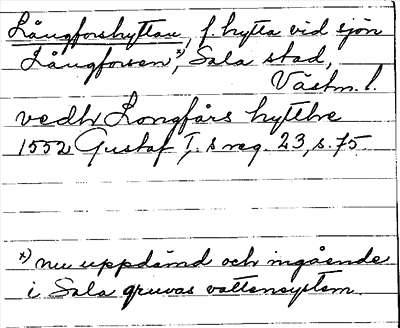 Långforshyttan, f. hytta vid sjön
Långforsen*), Sala stad,
Västm. l.
vedh Longfårs hytthe
1552 Gustaf I:s reg. 23, s. 75.
*) nu uppdämd och ingående
i Sala gruvas vattensystem.